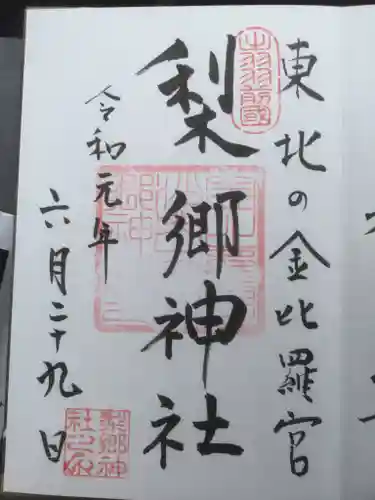 東北の金比羅宮
梨郷神社
令和元年
六月二十九日
出羽國
梨郷神
社之印